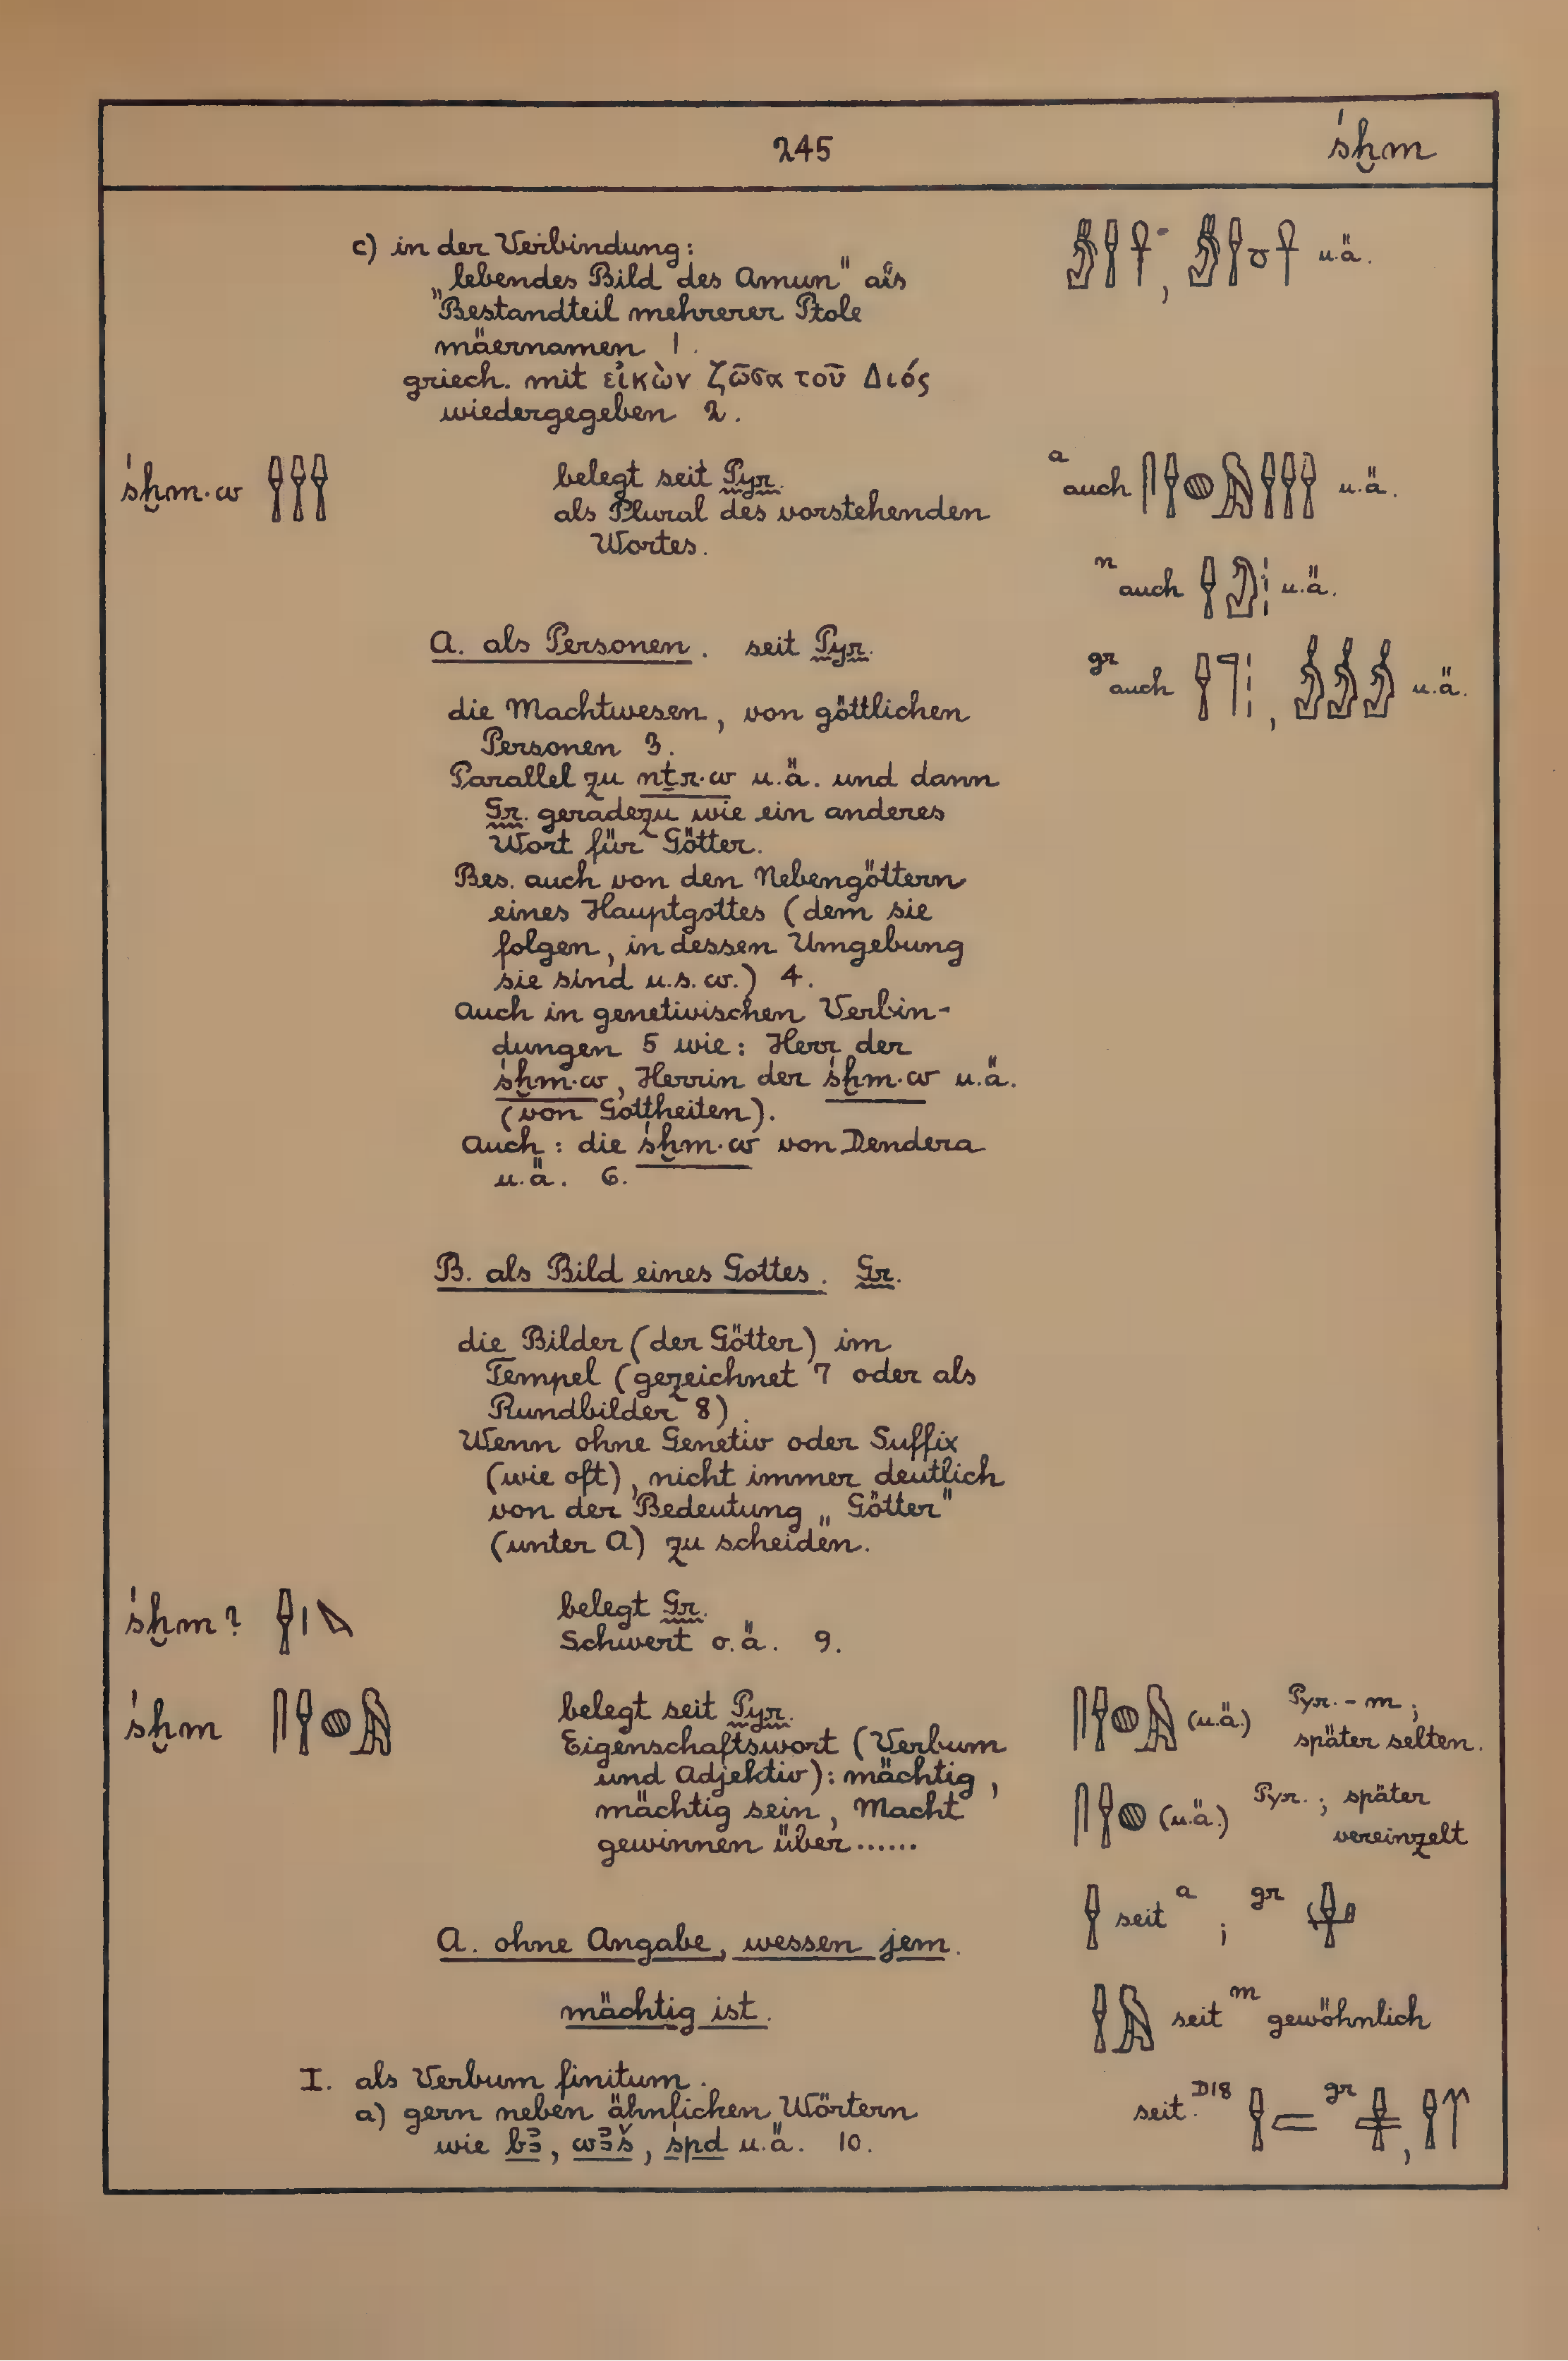 245
śḫm
c) in der Verbindung:
„lebendes Bild des Amun" als
Bestandteil mehrerer Ptole
mäernamen 1.
griech. mit εἰκὼν ζῶσα τοῦ Διός
wiedergegeben 2.
u.ä.
śḫm·w
belegt seit Pyr.
als Plural des vorstehenden
Wortes.
a auch u.ä.
n auch u.ä.
gr auch , u.ä.
A. als Personen. seit Pyr.
die Machtwesen, von göttlichen
Personen 3.
Parallel zu nṯr·w u.ä. und dann
Gr. geradezu wie ein anderes
Wort für Götter.
Bes. auch von den Nebengöttern
eines Hauptgottes (dem sie
folgen, in dessen Umgebung
sie sind u.s.w.) 4.
Auch in genetivischen Verbin-
dungen 5 wie: Herr der
śḫm·w, Herrin der śḫm·w u.ä.
(von Gottheiten).
Auch: die śḫm·w von Dendera
u.ä. 6.
B. als Bild eines Gottes. Gr.
die Bilder (der Götter) im
Tempel (gezeichnet 7 oder als
Rundbilder 8).
Wenn ohne Genetiv oder Suffix
(wie oft), nicht immer deutlich
von der Bedeutung „Götter"
(unter A) zu scheiden.
śḫm?
belegt Gr.
Schwert o.ä. 9.
śḫm
belegt seit Pyr.
Eigenschaftswort (Verbum
und Adjektiv): mächtig,
mächtig sein, Macht
gewinnen über......
(u.ä.) Pyr. - m;
später selten.
(u.ä.) Pyr.; später
vereinzelt
seit a ; gr
seit m gewöhnlich
seit D18 gr ,
A. ohne Angabe, wessen jem.
mächtig ist.
I. als Verbum finitum.
a) gern neben ähnlichen Wörtern
wie bꜣ, wꜣš, śpd u.ä. 10.